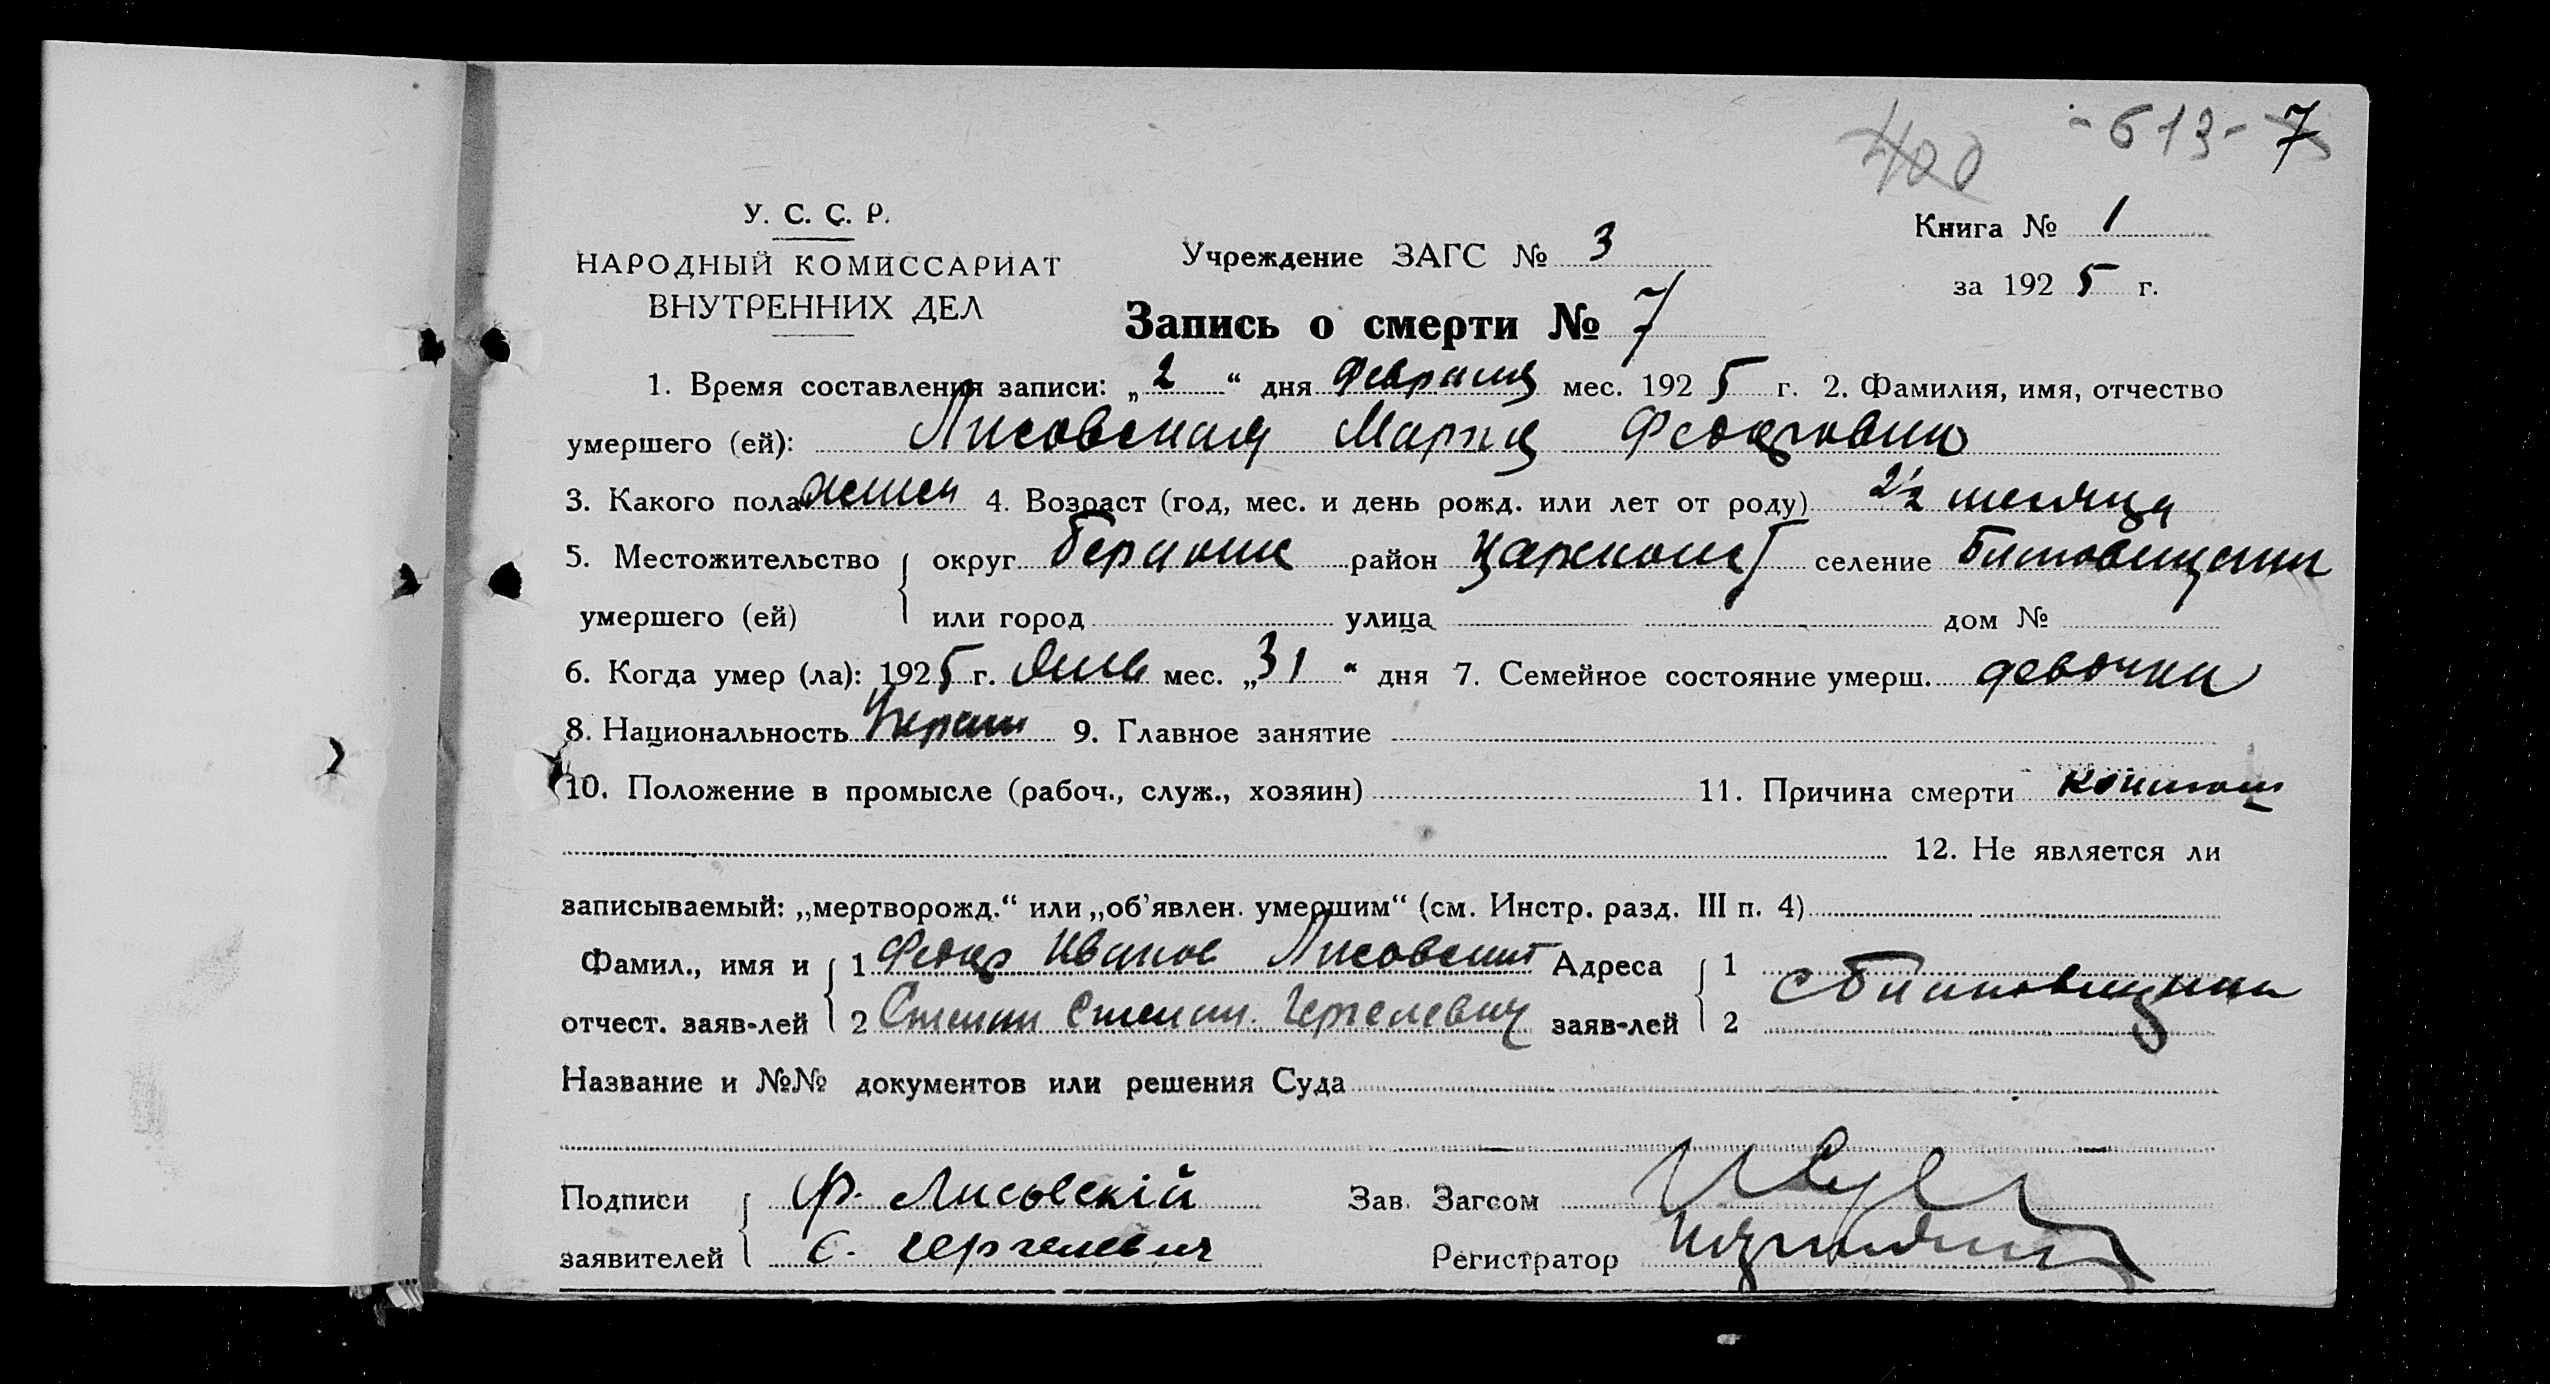 400 - 613 - 7
У. С. С. Р.
НАРОДНЫЙ КОМИССАРИАТ
ВНУТРЕННИХ ДЕЛ
Учреждение ЗАГС № 3
Книга № 1
за 1925 г.
Запись о смерти № 7
1. Время составления записи: „2“ дня Февраля мес. 1925 г. 2. Фамилия, имя, отчество
умершего (ей): Лисовская Мария Федоровна
3. Какого пола женск 4. Возраст (год, мес. и день рожд. или лет от роду) 2½ месяца
5. Местожительство округ район селение
умершего (ей) или город улица дом №
6. Когда умер (ла): 1925 г. Янв мес. „31“ дня 7. Семейное состояние умерш. девочка
8. Национальность Украин 9. Главное занятие
10. Положение в промысле (рабоч., служ., хозяин) 11. Причина смерти
12. Не является ли
записываемый: „мертворожд.“ или „об’явлен. умершим“ (см. Инстр. разд. III п. 4)
Фамил., имя и 1 Федор Иванов Лисовский Адреса 1 с
отчест. заяв-лей 2 Степан Степан. Чергелевич заяв-лей 2
Название и №№ документов или решения Суда
Подписи Ф. Лисовскій Зав. Загсом
заявителей С. Чергелевич Регистратор